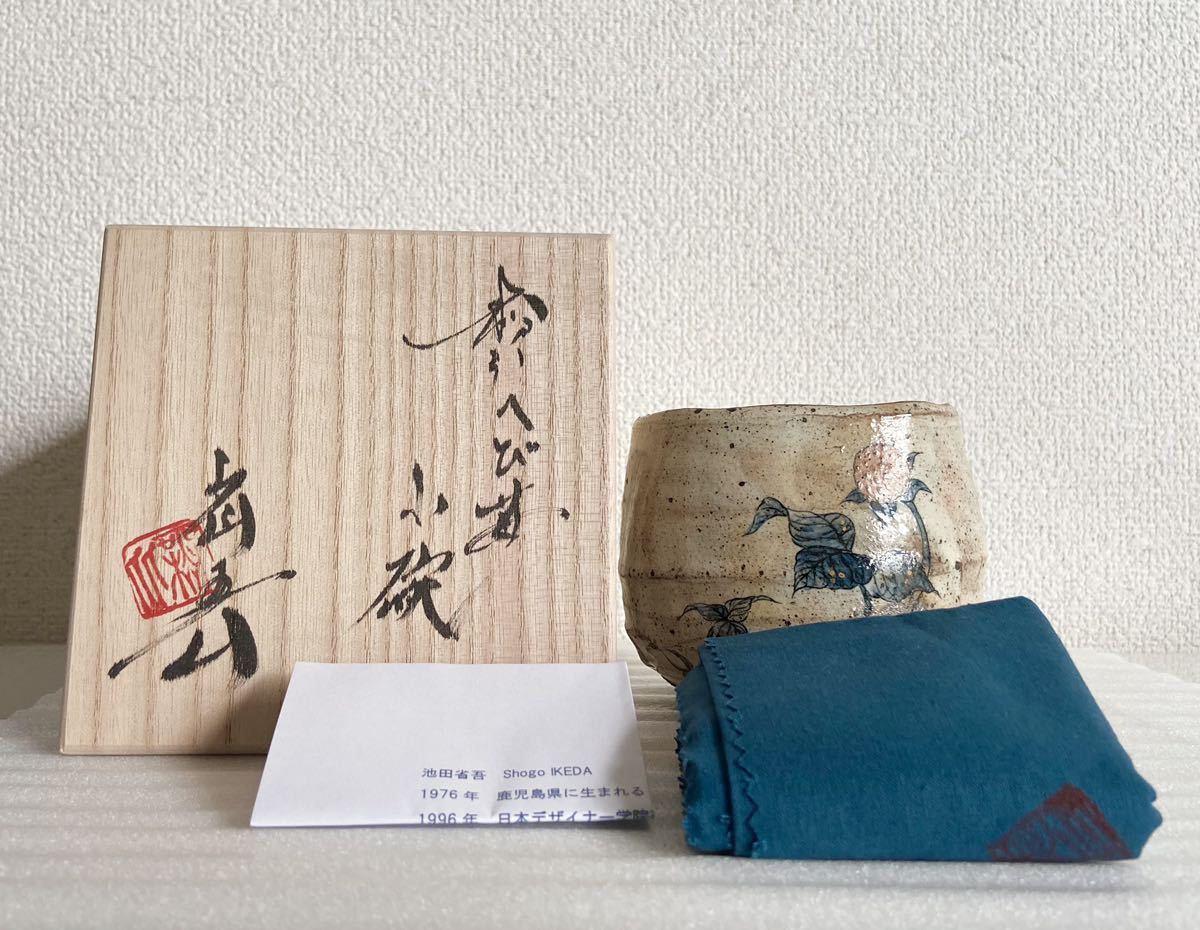 粉引へび苺
小碗
省吾
池田省吾 Shogo IKEDA
1976年 鹿児島県に生まれる
1996年 日本デザイナー学院